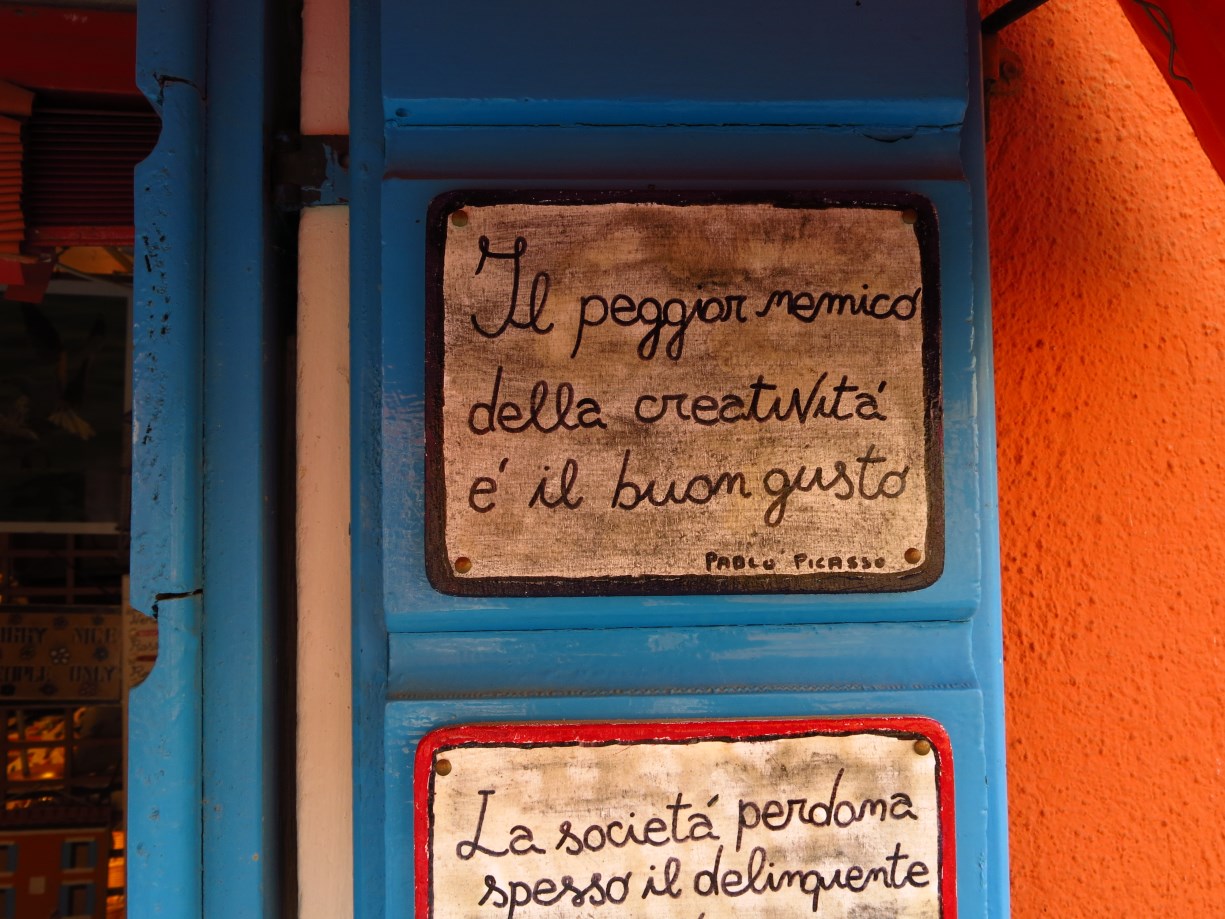 Il peggior nemico
della creatività
é il buon gusto
PABLO PICASSO
La societá perdona
spesso il delinquente